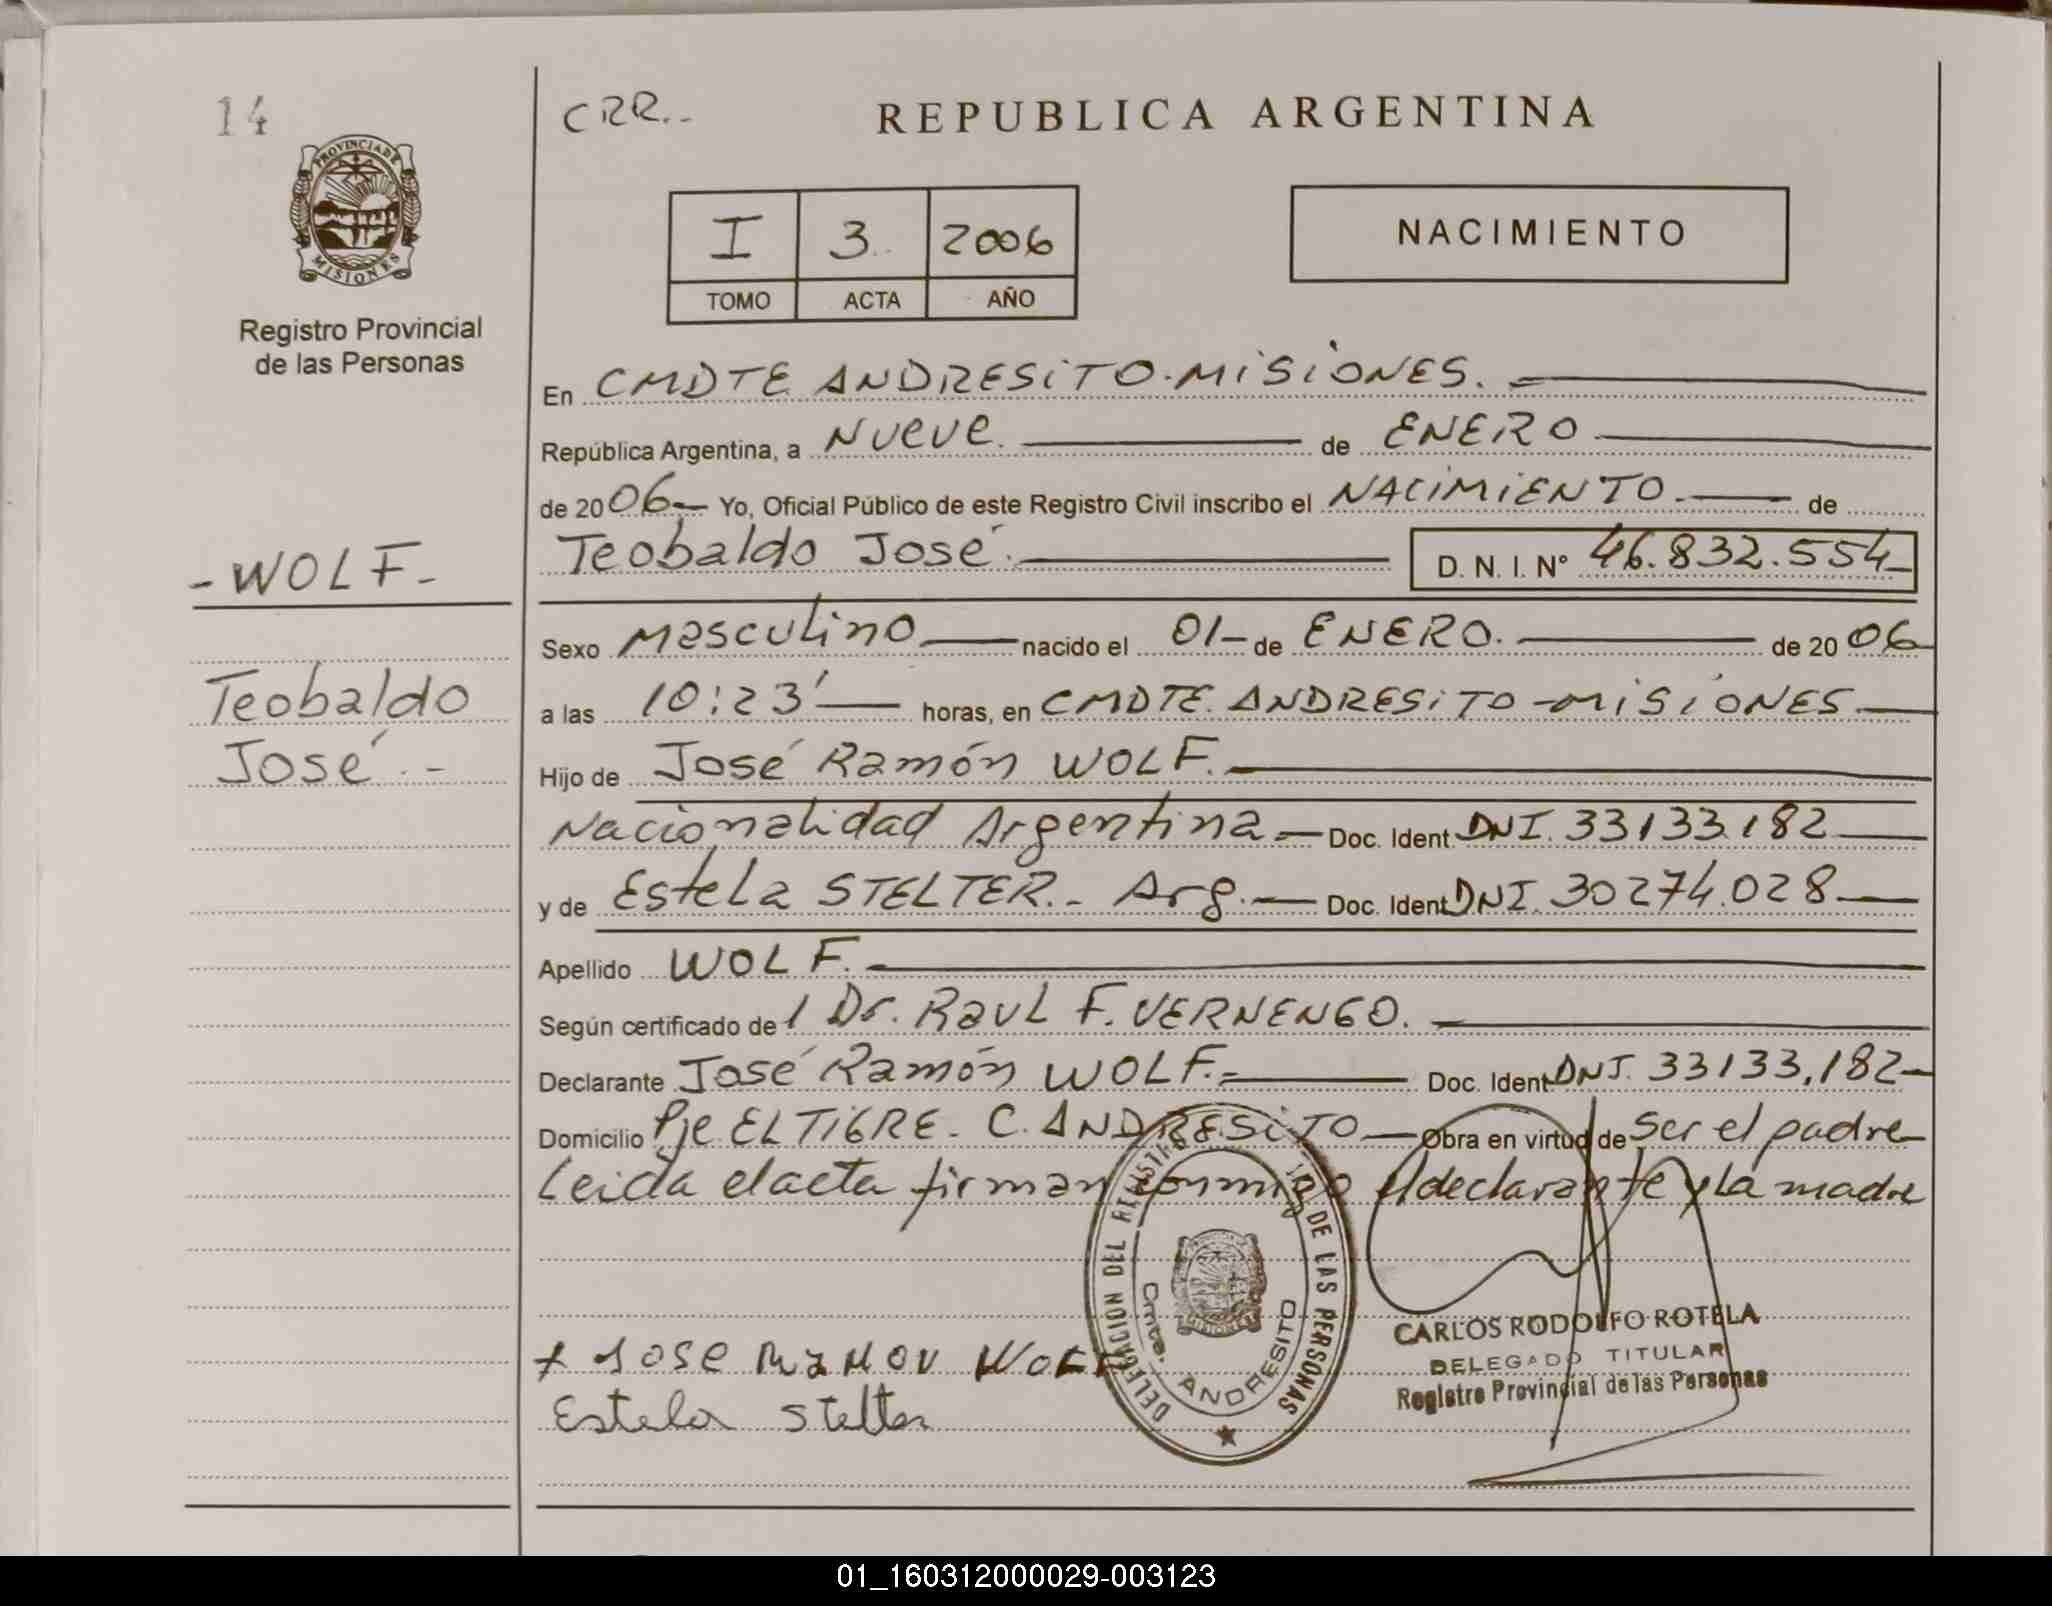 14
CRR..
REPUBLICA ARGENTINA
PROVINCIA DE
MISIONES
Registro Provincial
de las Personas
I 3 2006
TOMO ACTA AÑO
NACIMIENTO
En CMDTE ANDRESITO-MISIONES.
República Argentina, a Nueve de ENERO
de 2006 Yo, Oficial Público de este Registro Civil inscribo el NACIMIENTO. de
Teobaldo José. D. N. I. Nº 46.832.554
-WOLF-
Teobaldo
José.-
Sexo Masculino nacido el 01 de ENERO. de 2006
a las 10:23' horas, en CMDTE. ANDRESITO-MISIONES
Hijo de José Ramón WOLF.
Nacionalidad Argentina Doc. Ident. DNI. 33133.182
y de Estela STELTER.- Arg. Doc. Ident. DNI. 30274.028
Apellido WOLF.
Según certificado de Dr. Raul F. VERNENGO.
Declarante José Ramón WOLF. Doc. Ident. DNI. 33133.182
Domicilio Pje EL TIGRE- C. ANDRESITO Obra en virtud de Ser el padre
Leida el acta firman conmigo el declarante y la madre
DELEGACION DEL REGISTRO DE LAS PERSONAS
Cmte. ANDRESITO
MISIONES
CARLOS RODOLFO ROTELA
DELEGADO TITULAR
Registro Provincial de las Personas
JOSE RAMON WOLF
Estela Stelter
01_160312000029-003123